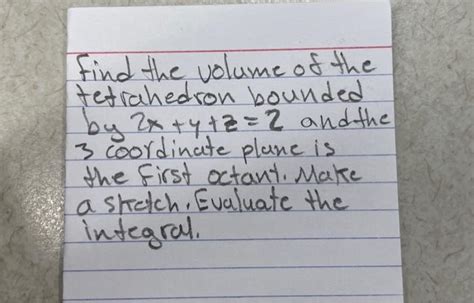 find the volume of the
tetrahedron bounded
by 2x + y + z = 2 and the
3 coordinate plane is
the first octant. Make
a sketch. Evaluate the
integral.